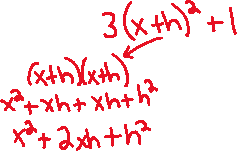 3(x+h)² + 1
(x+h)(x+h)
x² + xh + xh + h²
x² + 2xh + h²